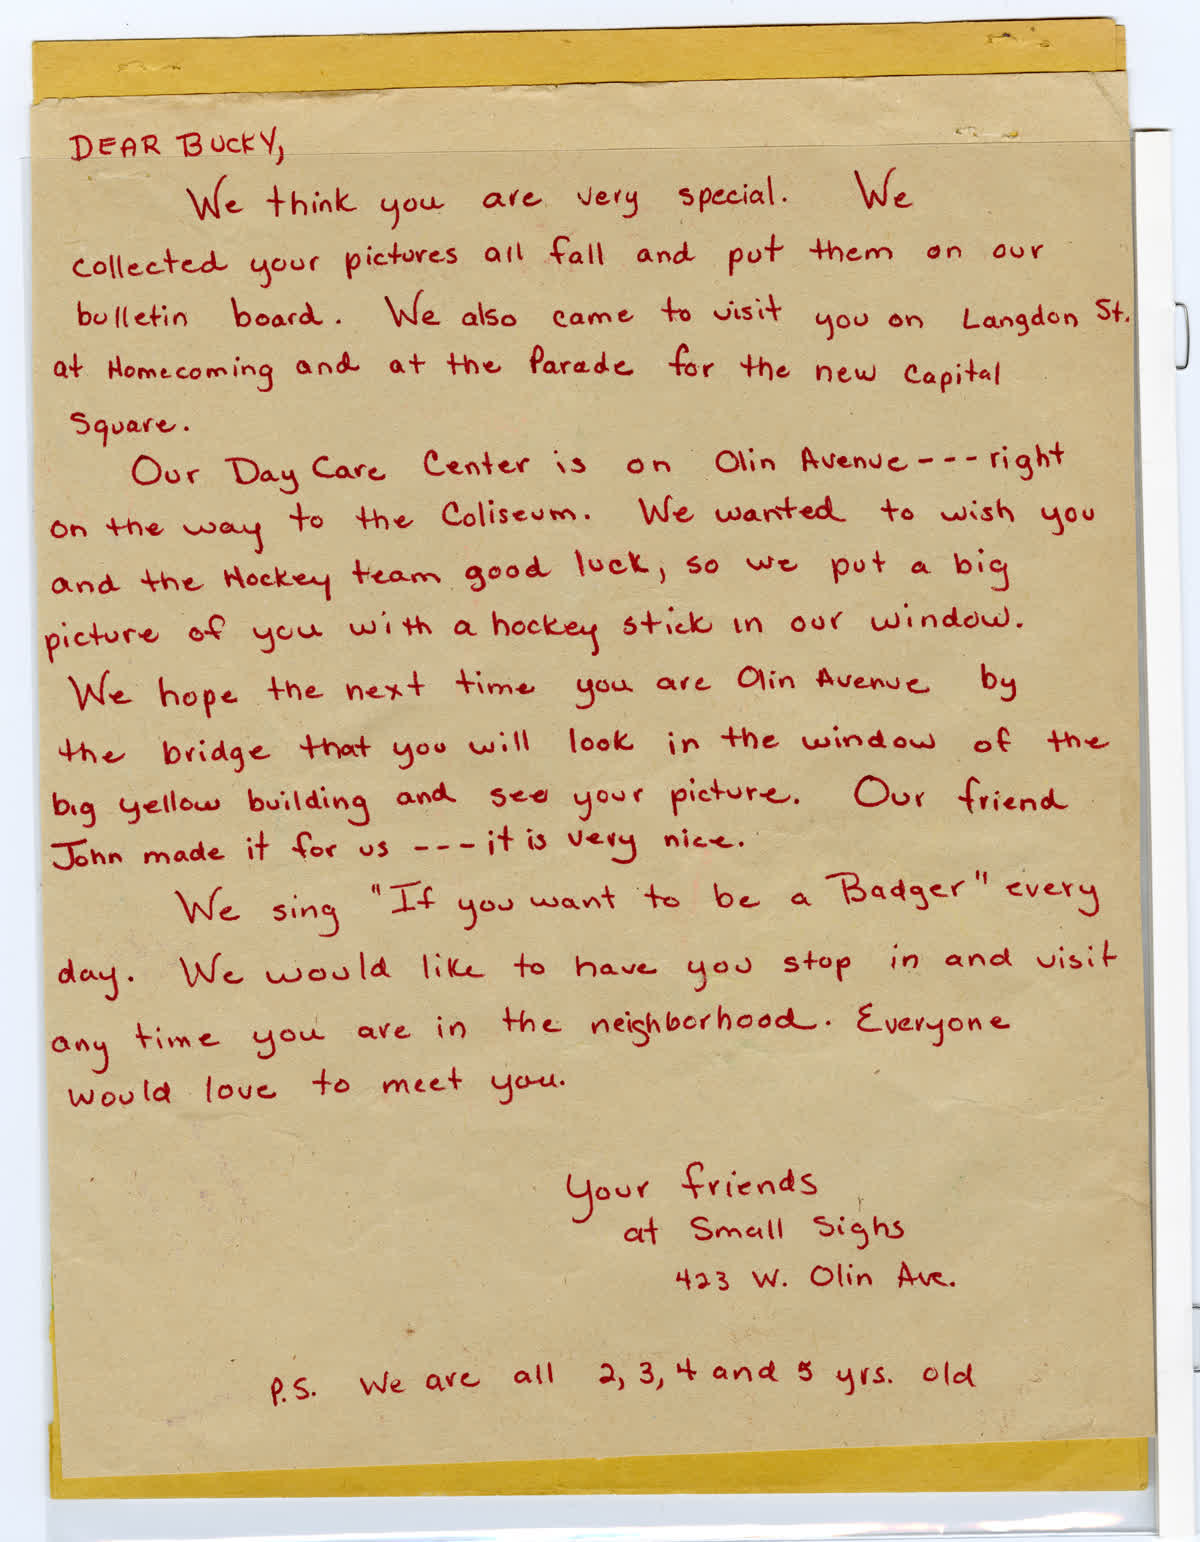 DEAR BUCKY,
We think you are very special. We
collected your pictures all fall and put them on our
bulletin board. We also came to visit you on Langdon St.
at Homecoming and at the Parade for the new Capital
Square.
Our Day Care Center is on Olin Avenue --- right
on the way to the Coliseum. We wanted to wish you
and the Hockey team good luck, so we put a big
picture of you with a hockey stick in our window.
We hope the next time you are Olin Avenue by
the bridge that you will look in the window of the
big yellow building and see your picture. Our friend
John made it for us --- it is very nice.
We sing "If you want to be a Badger" every
day. We would like to have you stop in and visit
any time you are in the neighborhood. Everyone
would love to meet you.
Your friends
at Small Sighs
423 W. Olin Ave.
P.S. We are all 2, 3, 4 and 5 yrs. old